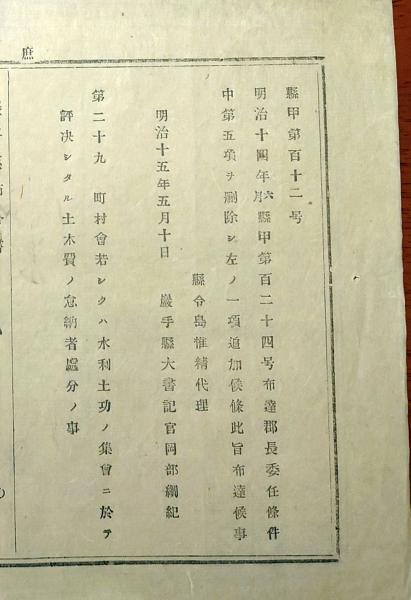 庶
縣甲第百十二号
明治十四年六月縣甲第百二十四号布達郡長委任條件
中第五項ヲ刪除シ左ノ一項追加候條此旨布達候事
縣令島惟精代理
明治十五年五月十日　巖手縣大書記官岡部綱紀
第二十九　町村會若シクハ水利土功ノ集會ニ於テ
評决シタル土木費ノ怠納者處分ノ事